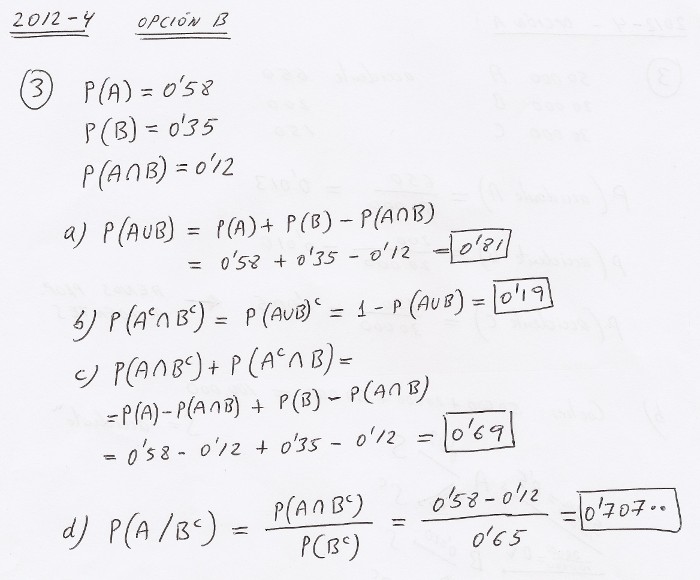 2012-4 OPCIÓN B
3 P(A) = 0'58
P(B) = 0'35
P(A∩B) = 0'12
a) P(A∪B) = P(A) + P(B) - P(A∩B)
= 0'58 + 0'35 - 0'12 = 0'81
b) P(Aᶜ∩Bᶜ) = P(A∪B)ᶜ = 1 - P(A∪B) = 0'19
c) P(A∩Bᶜ) + P(Aᶜ∩B) =
= P(A) - P(A∩B) + P(B) - P(A∩B)
= 0'58 - 0'12 + 0'35 - 0'12 = 0'69
d) P(A/Bᶜ) = P(A∩Bᶜ) / P(Bᶜ) = 0'58 - 0'12 / 0'65 = 0'707..